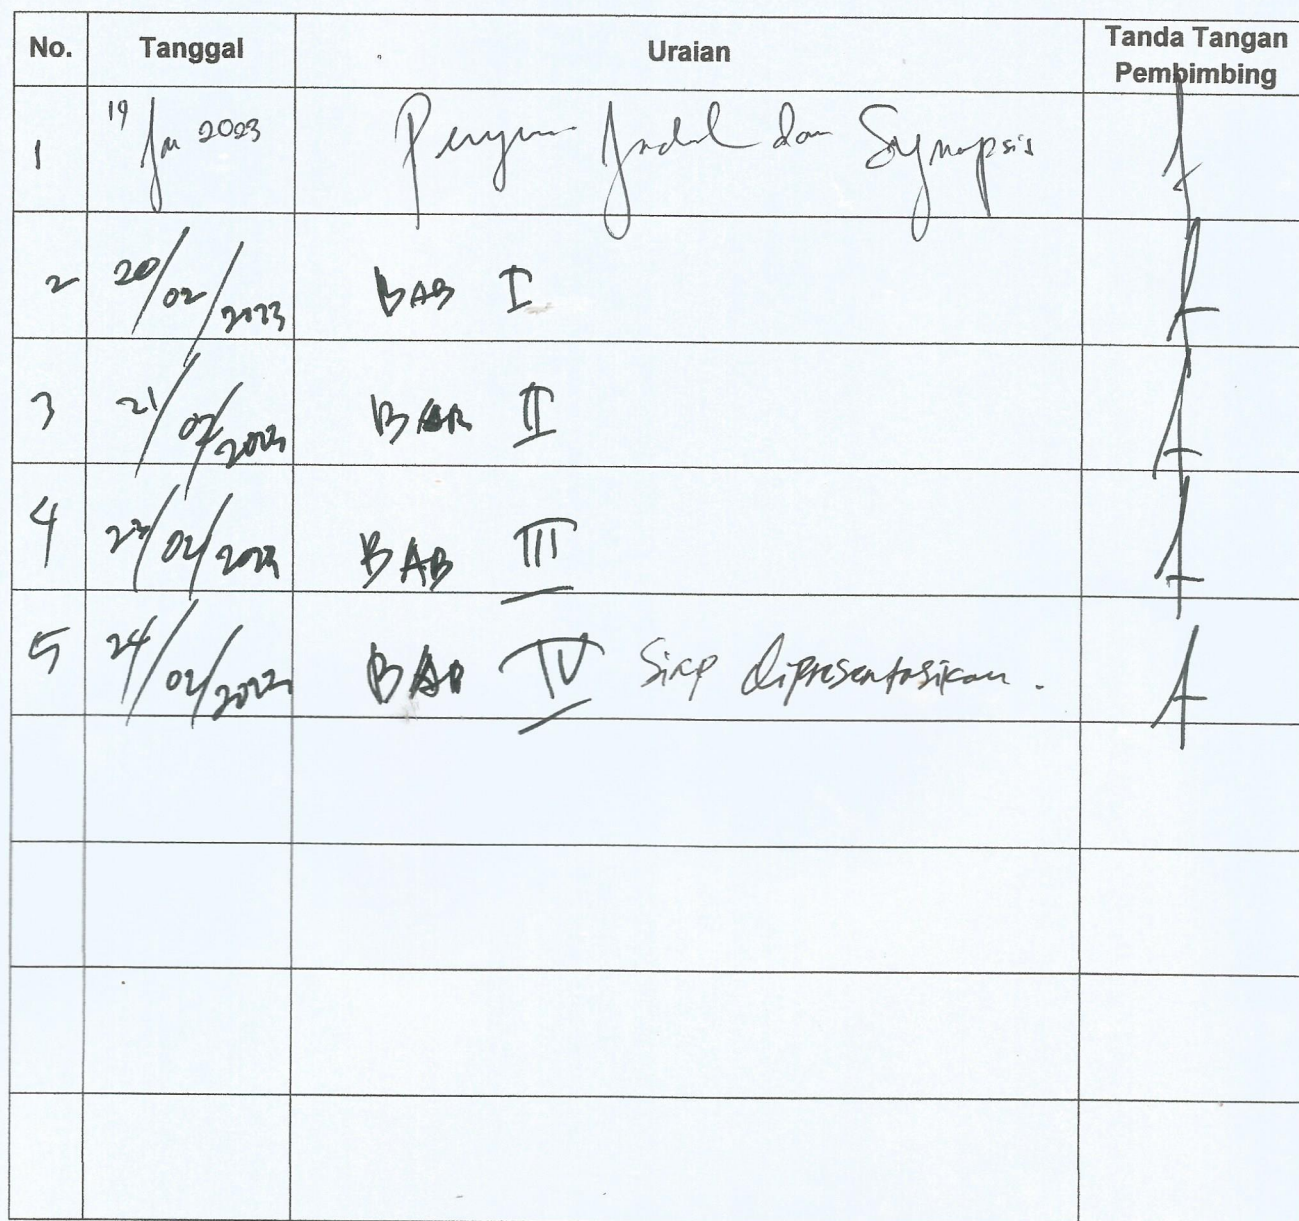 No. Tanggal Uraian Tanda Tangan Pembimbing
1 19 Jan 2023 Judul dan Synopsis
2 20/02/2023 BAB I
3 21/02/2023 BAB II
4 23/02/2023 BAB III
5 24/02/2023 BAB IV Siap dipresentasikan.